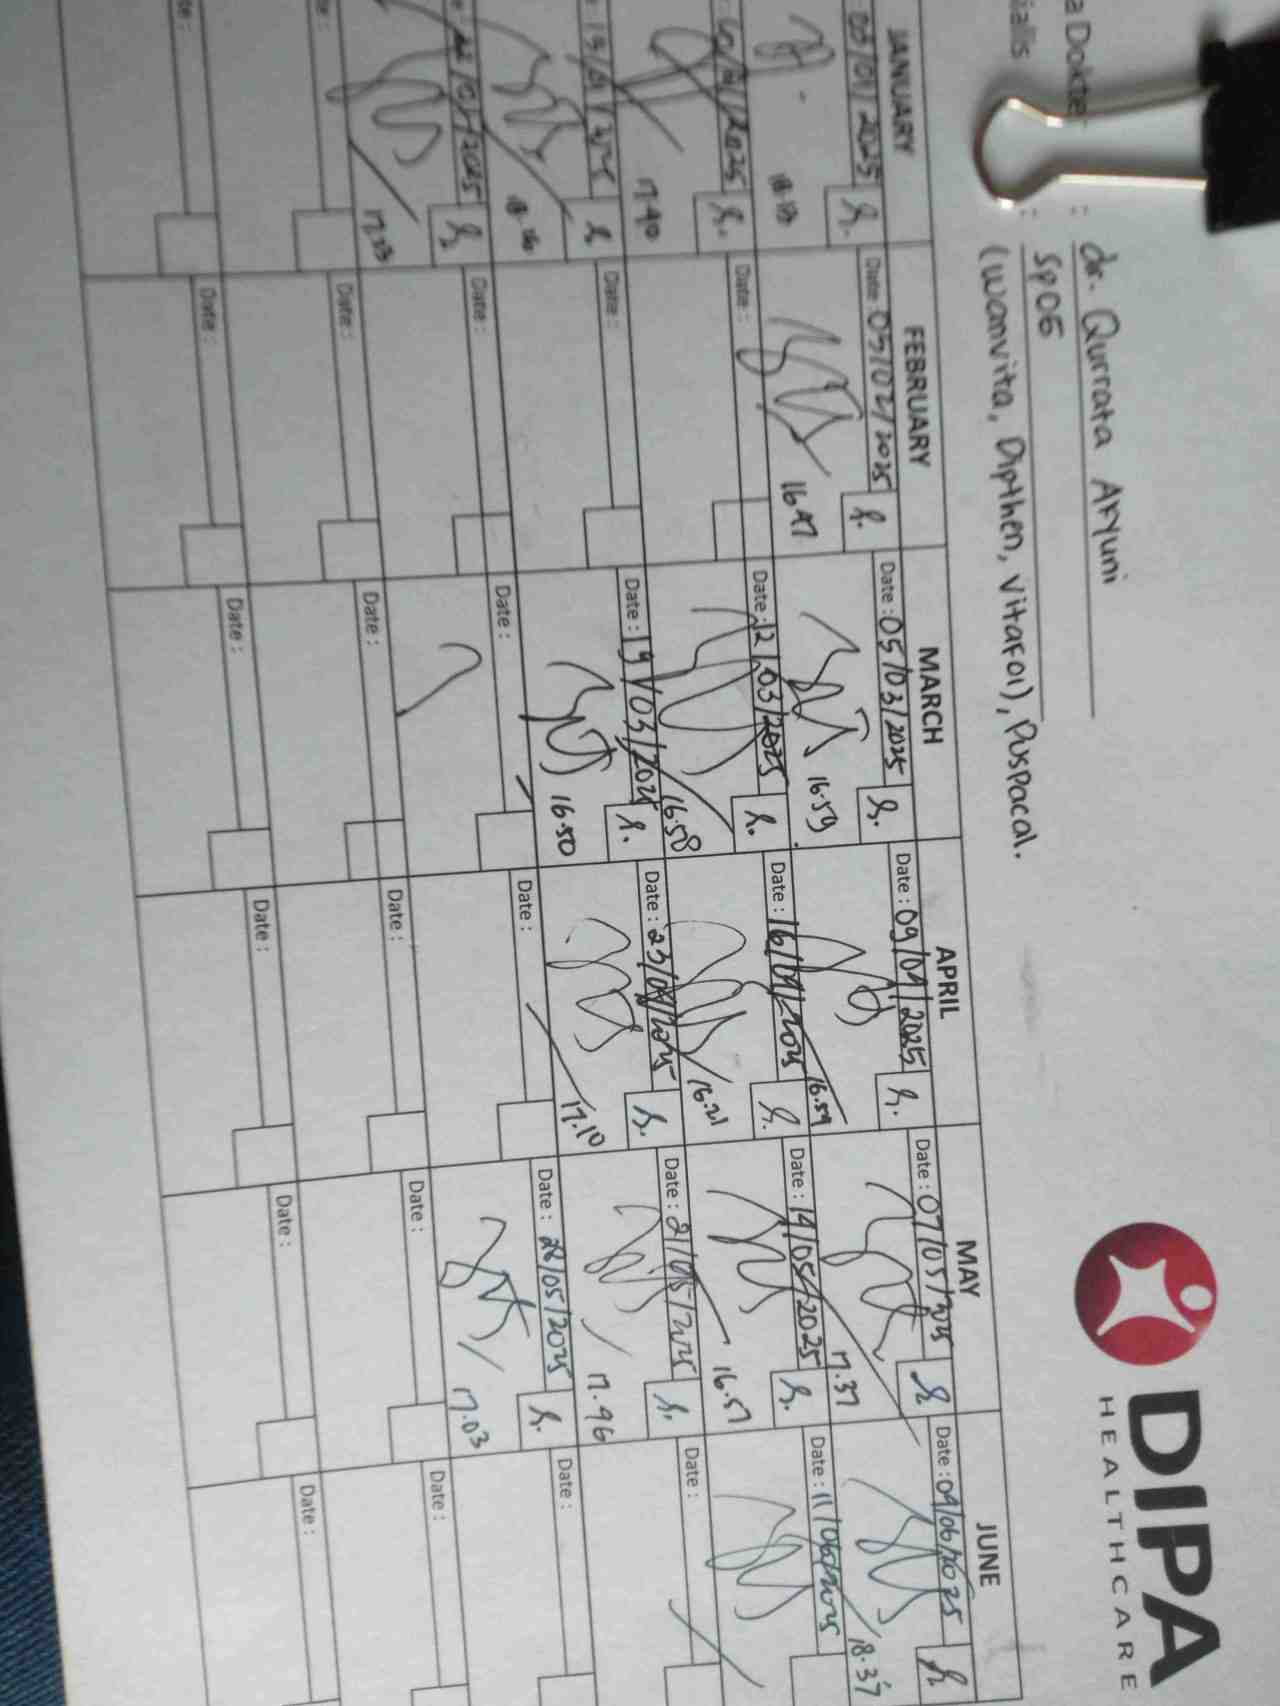 DIPA
HEALTHCARE
a Dokter : dr. Qurrata Afyuni
ialis : SpOG
(Wanvita, Dipthen, Vitafol), Puspacal.
JANUARY FEBRUARY MARCH APRIL MAY JUNE
/01/2025 Date : 05/02/2025 Date : 05/03/2025 Date : 09/04/2025 Date : 07/05/2025 Date : 04/06/2025
16.47 16.59 16.59 17.37 18.37
/2025 Date : Date : 12/03/2025 Date : 16/04/2025 Date : 14/05/2025 Date : 11/06/2025
17.40 16.58 16.21 16.57
Date : Date : 19/03/2025 Date : 23/04/2025 Date : 21/05/2025 Date :
16.50 17.10 17.46
/2025 Date : Date : Date : Date : 28/05/2025 Date :
17.03
Date : Date : Date : Date : Date :
Date : Date : Date : Date : Date :